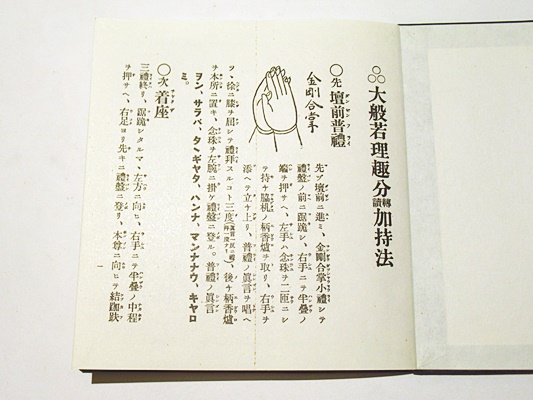 大般若理趣分轉讀加持法
〇先壇前普禮
金剛合掌
先ヅ壇前ニ進ミ、金剛合掌小禮シテ
禮盤ノ前ニ踞跪シ、右手ニテ半疊ノ
端ヲ押サヘ、左手ハ念珠ヲ二匝ニシ
テ持チ脇机ノ柄香爐ヲ取リ、右手ヲ
添ヘテ立チ上リ、普禮ノ眞言ヲ唱ヘ
ツ、徐ニ膝ヲ屈シテ禮拜スルコト三度後チ柄香爐
ヲ本所ニ置キ、念珠ヲ左腕ニ掛ケ禮盤ニ登ル。普禮ノ眞言
ヲン、サラバ、タターギヤタ、ハンナ、マンナナウ、キヤロ
ミ。
〇次着座
三禮終リ、踞跪シタルマヽ、左方ニ向ヒ、右手ニテ半疊ノ中程
ヲ押サヘ、右足ヨリ先キニ禮盤ニ登リ、本尊ニ向ヒテ結跏趺
一